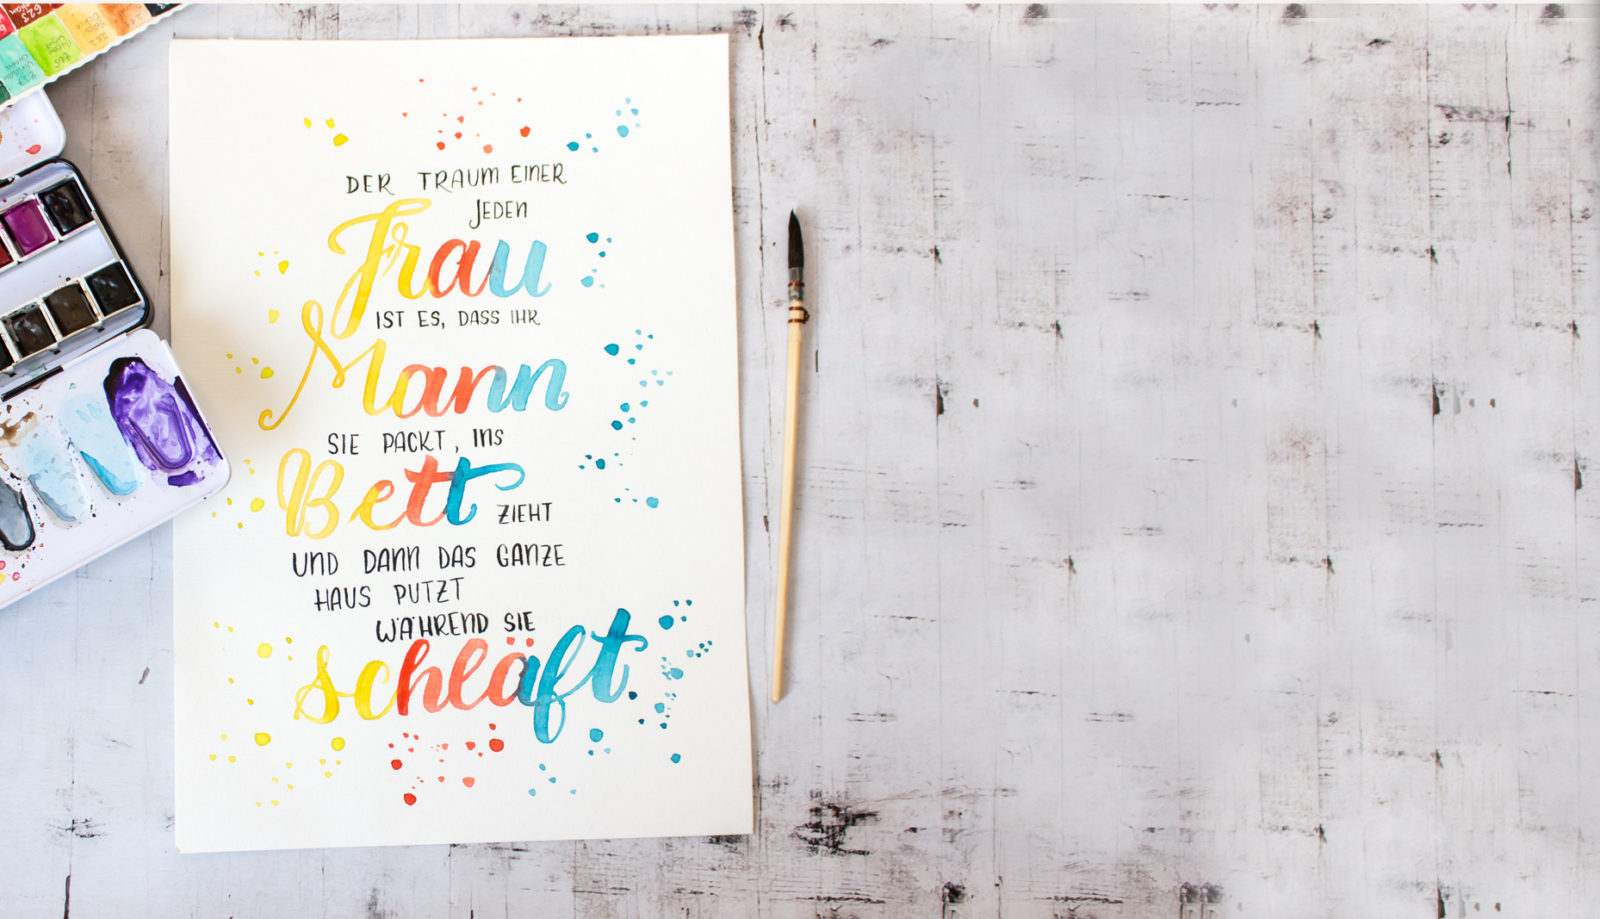 DER TRAUM EINER
JEDEN
Frau
IST ES, DASS IHR
Mann
SIE PACKT, INS
Bett ZIEHT
UND DANN DAS GANZE
HAUS PUTZT
WÄHREND SIE
schläft